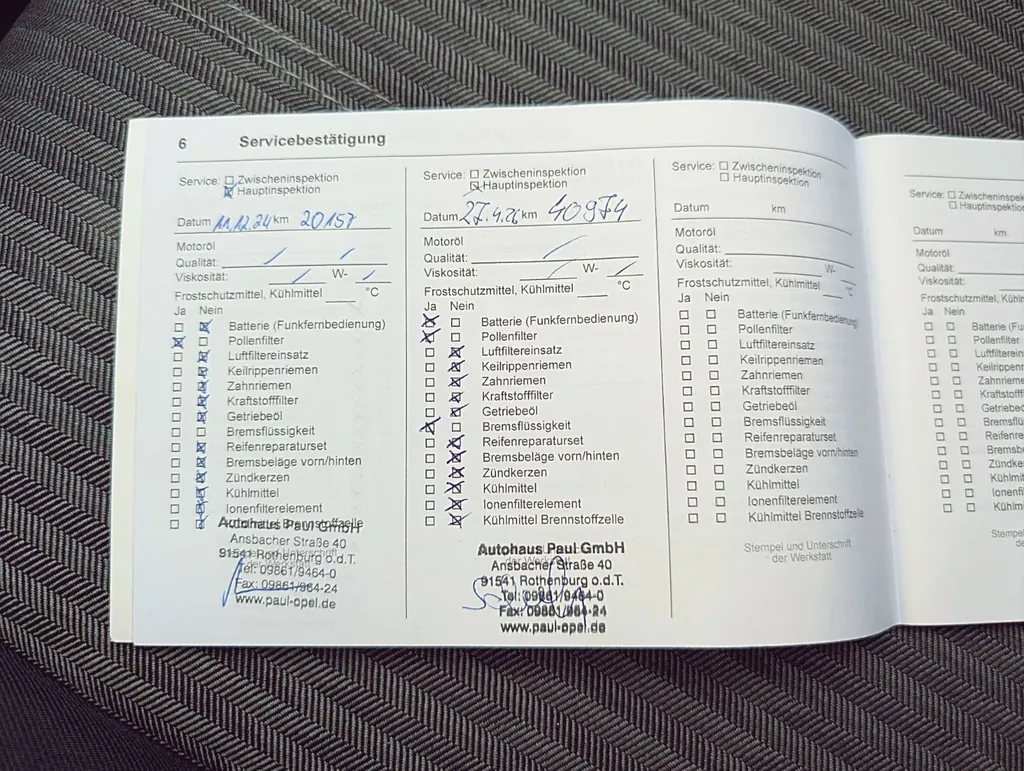 6 Servicebestätigung
Service: Zwischeninspektion
Hauptinspektion
Datum 11.12.24 km 20157
Motoröl
Qualität:
Viskosität: W-
Frostschutzmittel, Kühlmittel °C
Ja Nein
Batterie (Funkfernbedienung)
Pollenfilter
Luftfiltereinsatz
Keilrippenriemen
Zahnriemen
Kraftstofffilter
Getriebeöl
Bremsflüssigkeit
Reifenreparaturset
Bremsbeläge vorn/hinten
Zündkerzen
Kühlmittel
Ionenfilterelement
Kühlmittel Brennstoffzelle
Autohaus Paul GmbH
Ansbacher Straße 40
91541 Rothenburg o.d.T.
Stempel und Unterschrift
der Werkstatt
Tel: 09861/9464-0
Fax: 09861/964-24
www.paul-opel.de
Service: Zwischeninspektion
Hauptinspektion
Datum 27.4.26 km 40974
Motoröl
Qualität:
Viskosität: W-
Frostschutzmittel, Kühlmittel °C
Ja Nein
Batterie (Funkfernbedienung)
Pollenfilter
Luftfiltereinsatz
Keilrippenriemen
Zahnriemen
Kraftstofffilter
Getriebeöl
Bremsflüssigkeit
Reifenreparaturset
Bremsbeläge vorn/hinten
Zündkerzen
Kühlmittel
Ionenfilterelement
Kühlmittel Brennstoffzelle
Autohaus Paul GmbH
der Werkstatt
Ansbacher Straße 40
91541 Rothenburg o.d.T.
Tel: 09861/9464-0
Fax: 09861/964-24
www.paul-opel.de
Service: Zwischeninspektion
Hauptinspektion
Datum km
Motoröl
Qualität:
Viskosität: W-
Frostschutzmittel, Kühlmittel °C
Ja Nein
Batterie (Funkfernbedienung)
Pollenfilter
Luftfiltereinsatz
Keilrippenriemen
Zahnriemen
Kraftstofffilter
Getriebeöl
Bremsflüssigkeit
Reifenreparaturset
Bremsbeläge vorn/hinten
Zündkerzen
Kühlmittel
Ionenfilterelement
Kühlmittel Brennstoffzelle
Stempel und Unterschrift
der Werkstatt
Service: Zwischeninspektion
Hauptinspektion
Datum km
Motoröl
Qualität:
Viskosität:
Frostschutzmittel, Kühlm
Ja Nein
Batterie (Fu
Pollenfilter
Luftfilterein
Keilrippen
Zahnrieme
Kraftstofff
Getriebeö
Bremsflü
Reifenre
Bremsb
Zündke
Kühlmi
Ionenfi
Kühlm
Stem
de